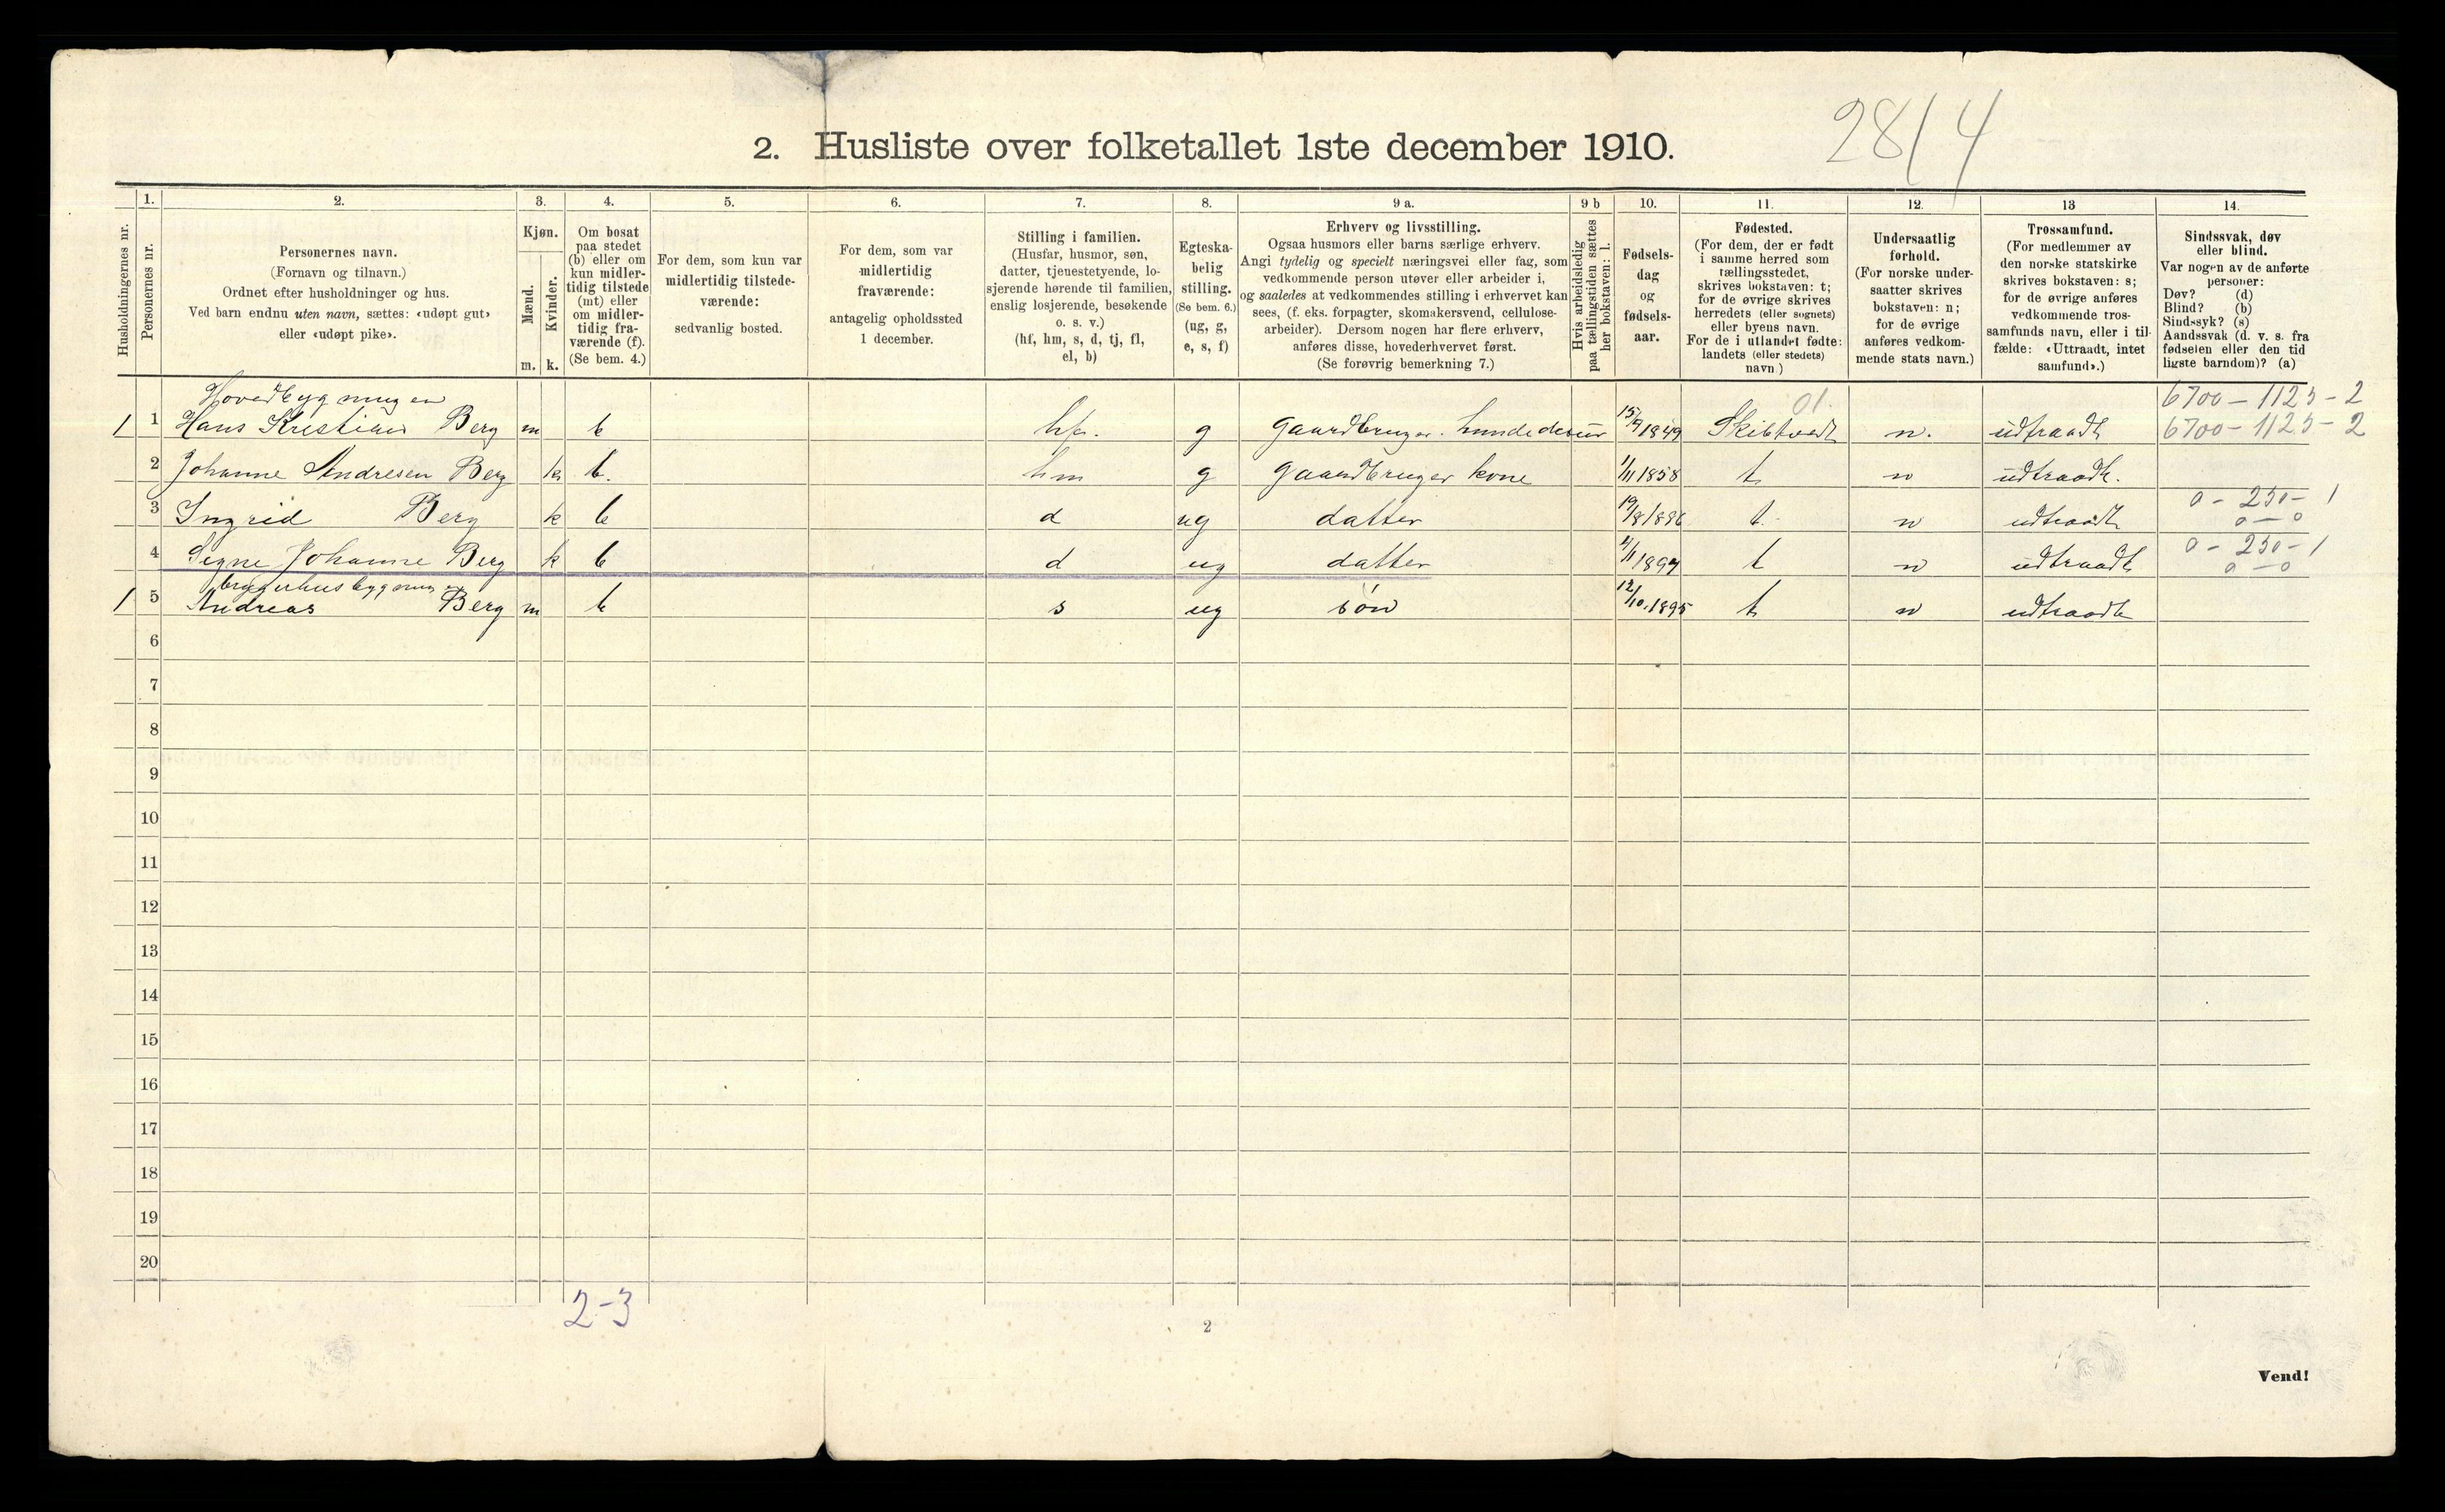 2. Husliste over folketallet 1ste december 1910.
28/4
Husholdningernes nr.
1.
Personernes nr.
2.
Personernes navn.
(Fornavn og tilnavn.)
Ordnet efter husholdninger og hus.
Ved barn endnu uten navn, sættes: «udøpt gut»
eller «udøpt pike».
3.
Kjøn.
Mænd.
Kvinder.
m. k.
4.
Om bosat
paa stedet
(b) eller om
kun midler-
tidig tilstede
(mt) eller
om midler-
tidig fra-
værende (f).
(Se bem. 4.)
5.
For dem, som kun var
midlertidig tilstede-
værende:
sedvanlig bosted.
6.
For dem, som var
midlertidig
fraværende:
antagelig opholdssted
1 december.
7.
Stilling i familien.
(Husfar, husmor, søn,
datter, tjenestetyende, lo-
sjerende hørende til familien,
enslig losjerende, besøkende
o. s. v.)
(hf, hm, s, d, tj, fl,
el, b)
8.
Egteska-
belig
stilling.
(Se bem. 6.)
(ug, g,
e, s, f)
9 a.
Erhverv og livsstilling.
Ogsaa husmors eller barns særlige erhverv.
Angi tydelig og specielt næringsvei eller fag, som
vedkommende person utøver eller arbeider i,
og saaledes at vedkommendes stilling i erhvervet kan
sees, (f. eks. forpagter, skomakersvend, cellulose-
arbeider). Dersom nogen har flere erhverv,
anføres disse, hovederhvervet først.
(Se forøvrig bemerkning 7.)
9 b
Hvis arbeidsledig
paa tællingstiden sættes
her bokstaven: l.
10.
Fødsels-
dag
og
fødsels-
aar.
11.
Fødested.
(For dem, der er født
i samme herred som
tællingsstedet,
skrives bokstaven: t;
for de øvrige skrives
herredets (eller sognets)
eller byens navn.
For de i utlandet fødte:
landets (eller stedets)
navn.)
12.
Undersaatlig
forhold.
(For norske under-
saatter skrives
bokstaven: n;
for de øvrige
anføres vedkom-
mende stats navn.)
13
Trossamfund.
(For medlemmer av
den norske statskirke
skrives bokstaven: s;
for de øvrige anføres
vedkommende tros-
samfunds navn, eller i til-
fælde: «Uttraadt, intet
samfund».)
14.
Sindssvak, døv
eller blind.
Var nogen av de anførte
personer:
Døv? (d)
Blind? (b)
Sindssyk? (s)
Aandssvak (d. v. s. fra
fødselen eller den tid
ligste barndom)? (a)
Hovedbygningen 01. 6700 - 1125 - 2
1 1 Hans Kristian Berg m b hf. g gaardbruger. 15/9 1849 Skibtvedt n. udtraadt 6700 - 1125 - 2
2 Johanne Andresen Berg k b. hm g gaardbruger kone 1/11 1858 t n udtraadt.
3 Ingrid Berg k b d ug datter 19/8 1886 t. n udtraadt 0 - 250 - 1
0 - 0
4 Signe Johanne Berg k b d ug datter 1894 t n udtraadt 0 - 250 - 1
0 - 0
bryggerhusbygning
1 5 Andreas Berg m b s ug søn 12/10. 1895 t n udtraadt
6
7
8
9
10
11
12
13
14
15
16
17
18
19
20
2-3
2
Vend!